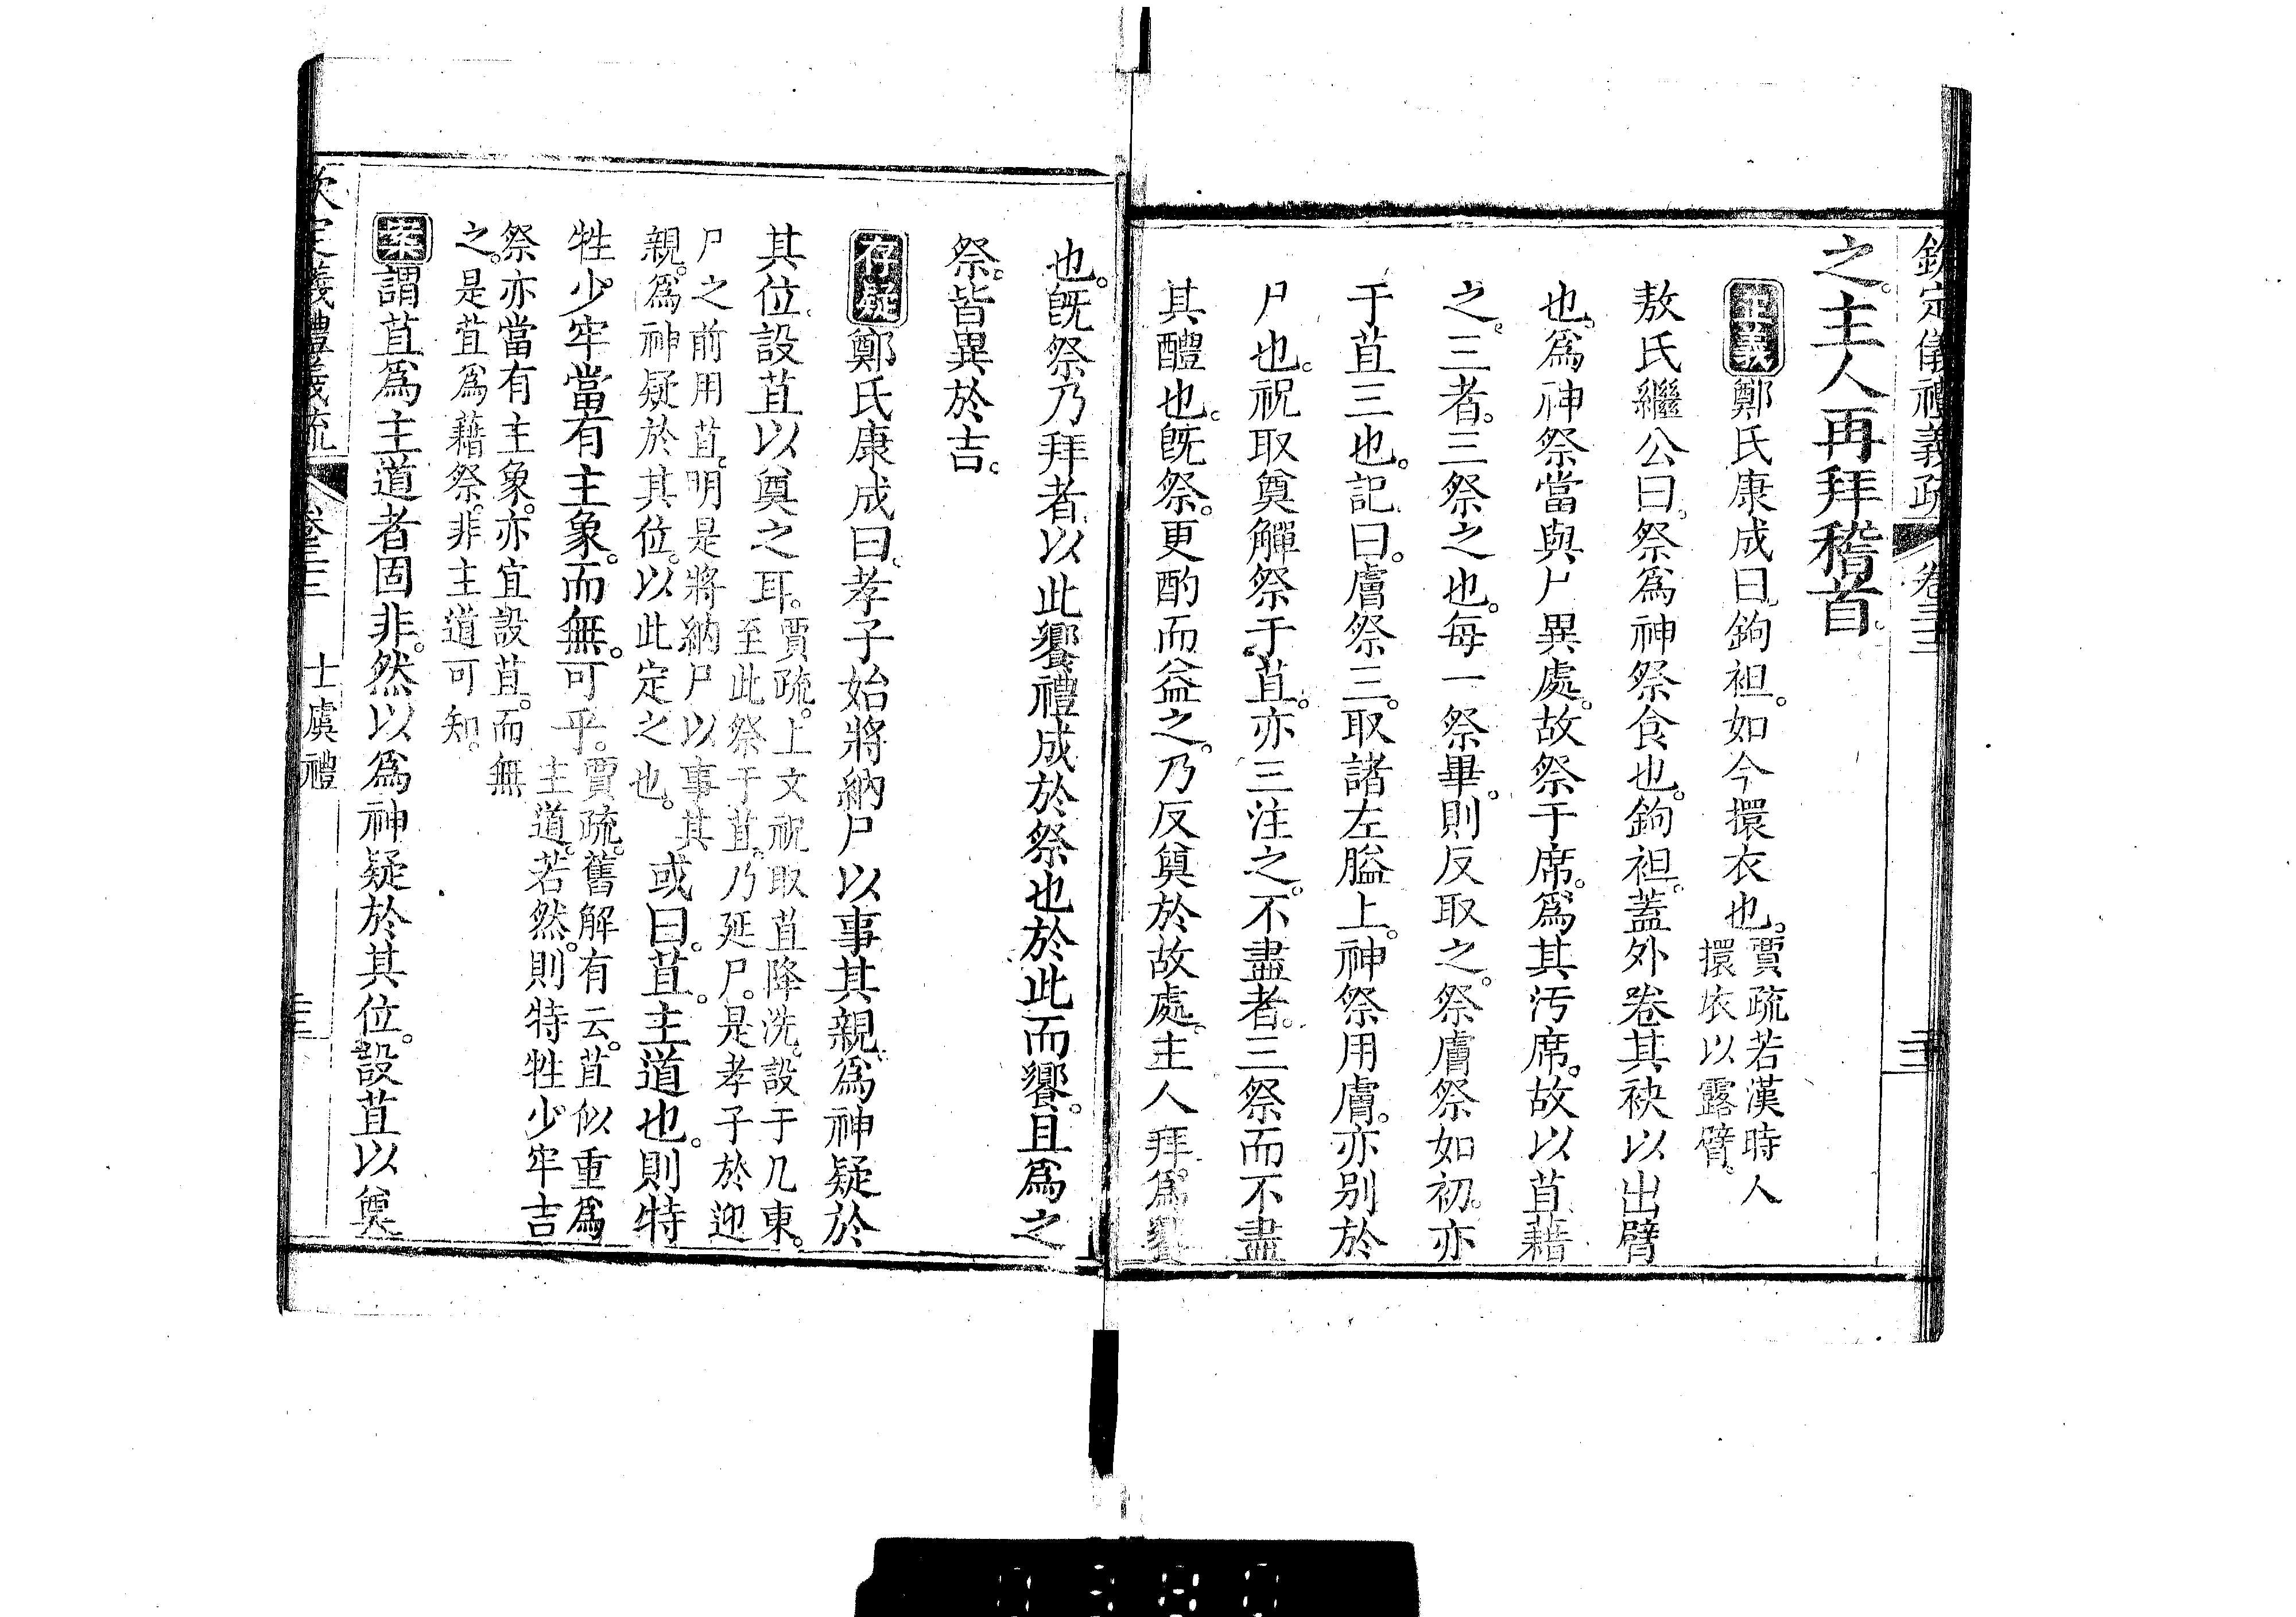 欽定儀禮義疏 卷三三
之。主人再拜稽首。
正義鄭氏康成曰。鉤袒。如今擐衣也。賈疏若漢時人
擐衣以露臂。
敖氏繼公曰。祭爲神祭食也。鉤袒。蓋外卷其袂以出臂
也。爲神祭當與尸異處。故祭于席。爲其汚席。故以苴藉
之。三者。三祭之也。每一祭畢。則反取之。祭膚祭如初。亦
于苴三也。記曰。膚祭三。取諸左膉上。神祭用膚。亦別於
尸也。祝取奠觶祭于苴。亦三注之。不盡者。三祭而不盡
其醴也。旣祭。更酌而益之。乃反奠於故處。主人拜。爲饗
也。旣祭乃拜者。以此饗禮成於祭也於此而饗。且爲之
祭。皆異於吉。
存疑鄭氏康成曰。孝子始將納尸以事其親。爲神疑於
其位。設苴以奠之耳。賈疏。上文祝取苴降洗。設于几東。
至此祭于苴。乃延尸。是孝子於迎
尸之前用苴。明是將納尸以事其
親。爲神疑於其位。以此定之也。或曰。苴。主道也。則特
牲。少牢當有主象。而無。可乎。賈疏。舊解有云。苴似重爲
主道。若然。則特牲少牢吉
祭亦當有主象。亦宜設苴。而無
之。是苴爲藉祭。非主道可知。
案謂苴爲主道者固非。然以爲神疑於其位。設苴以奠
欽定儀禮義疏 卷三三 士虞禮